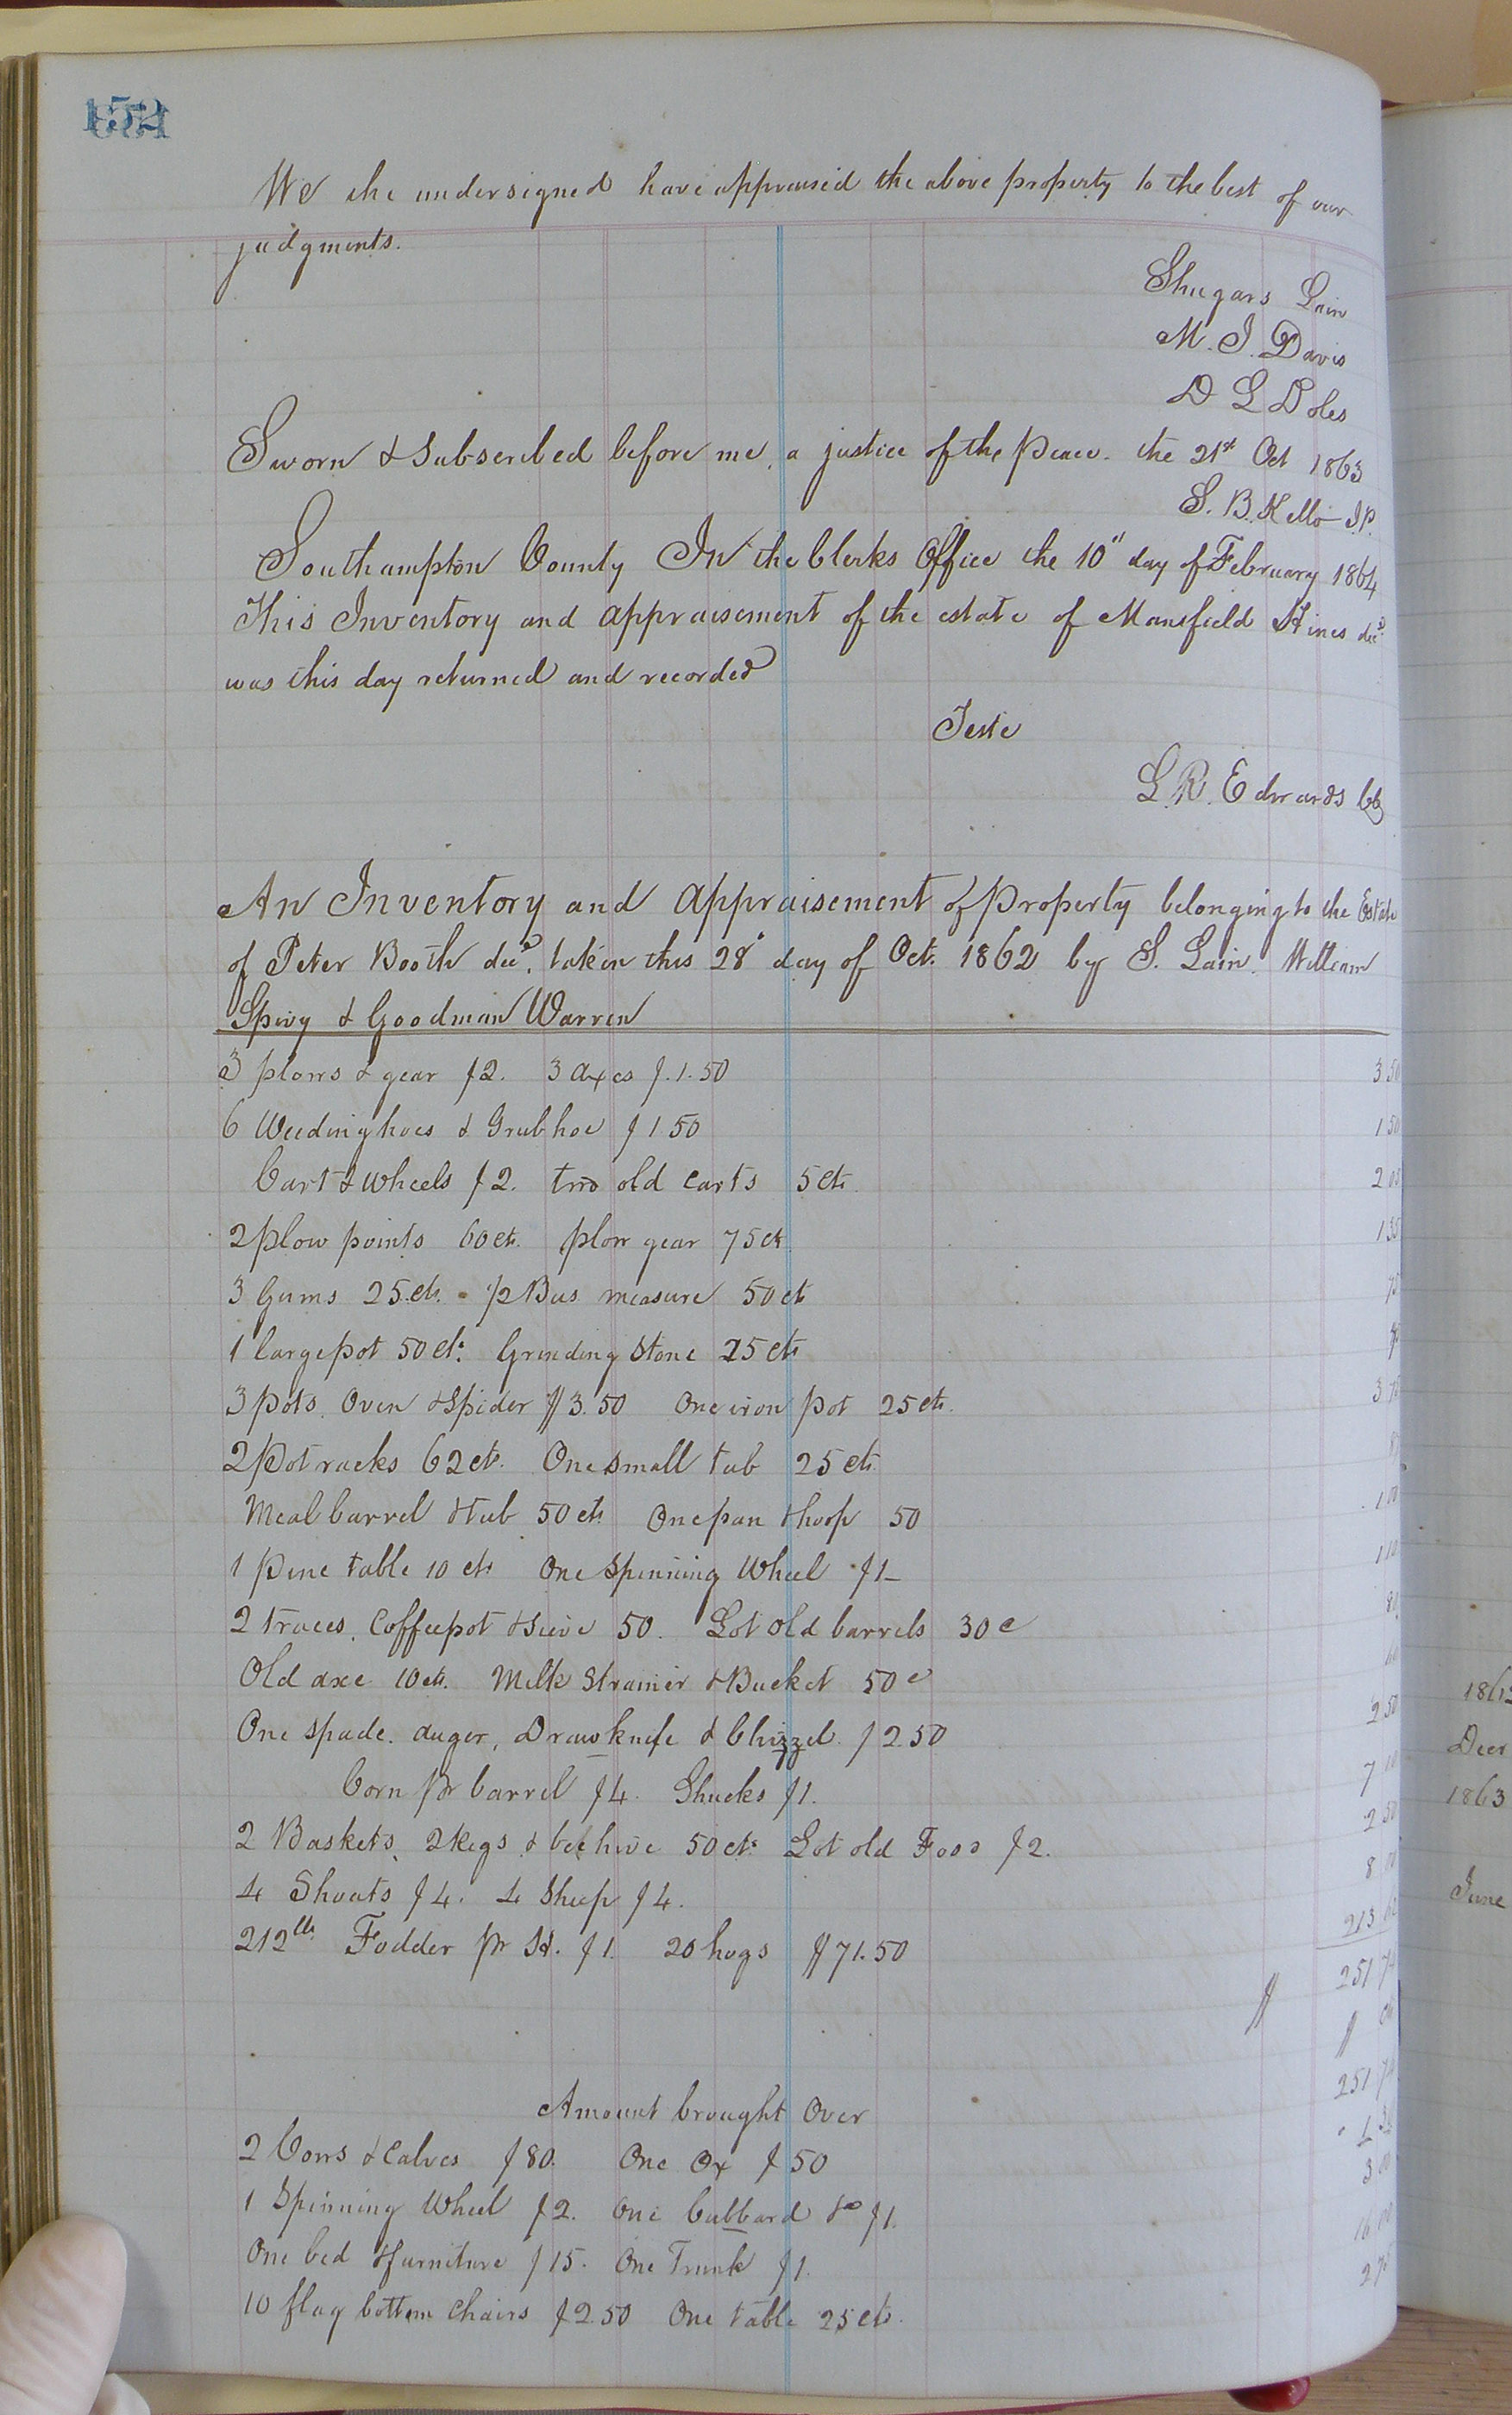 We the undersigned have appraised the above property to the best of our
judgments.
Shugars Lain
M. J. Davis
D L Doles
Sworn & Subscribed before me, a justice of the Peace. the 21st Oct 1863
S. B. Kello J.P.
Southampton County In the Clerks Office the 10" day of February 1864
This Inventory and Appraisement of the estate of Mansfield Hines decd
was this day returned and recorded
Teste
L. R. Edwards
An Inventory and Appraisement of Property belonging to the Estate
of Peter Booth decd, taken this 28" day of Oct. 1862 by S. Lain. William
Spivy & Goodman Warren
3 plows & gear $2. 3 Axes $.1.50 3.50
6 Weedinghoes & Grubhoe $1.50 1 50
Cart & Wheels $2. two old Carts 5 cts. 2 05
2 plow points 60 cts. plow gear 75 cts 1 35
3 Gums 25.cts. 1/2 Bus measure 50 cts 75
1 large pot 50 cts. Grinding Stone 25 cts
3 pots, Oven & Spider $3.50 One iron pot 25 cts. 3 75
2 Pot racks 62 cts. One small tub 25 cts
Meal barrel & tub 50 cts One pan & hoop 50 1 00
1 Pine table 10 cts One Spinning Wheel $1_ 1 10
2 traces, Coffeepot & Sieve 50. Lot old barrels 30 c 80
Old axe 10 cts. Milk Strainer & Bucket 50 c 60
One Spade. auger, Drawknife & Chizzel. $2.50 2 50
Corn pr barrel $4. Shucks $1.
2 Baskets, 2 Kegs, & beehive 50 cts Lot old $2. 2 50
4 Shoats $4. 4 Sheep $4. 8 00
212 lbs Fodder pr H. $1. 20 hogs $71.50 213
$ 251 74
$ cts
Amount brought Over 251 74
2 Cows & Calves $80. One Ox $50
1 Spinning Wheel $2. One Cubbard do $1. 3 00
One bed & furniture $15. One Trunk $1. 16 00
10 flag bottom Chairs $2.50 One table 25 cts. 2 75
1863
Decr
1863
June